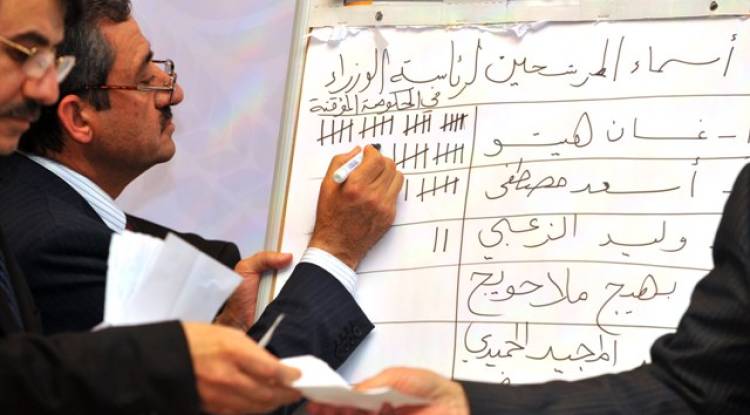 أسماء المرشحين لرئاسة الوزراء
في الحكومة المؤقتة
1- غسان هيتو
- أسعد مصطفى
وليد الزعبي
بهيج ملا حويج
المجيد الحميدي